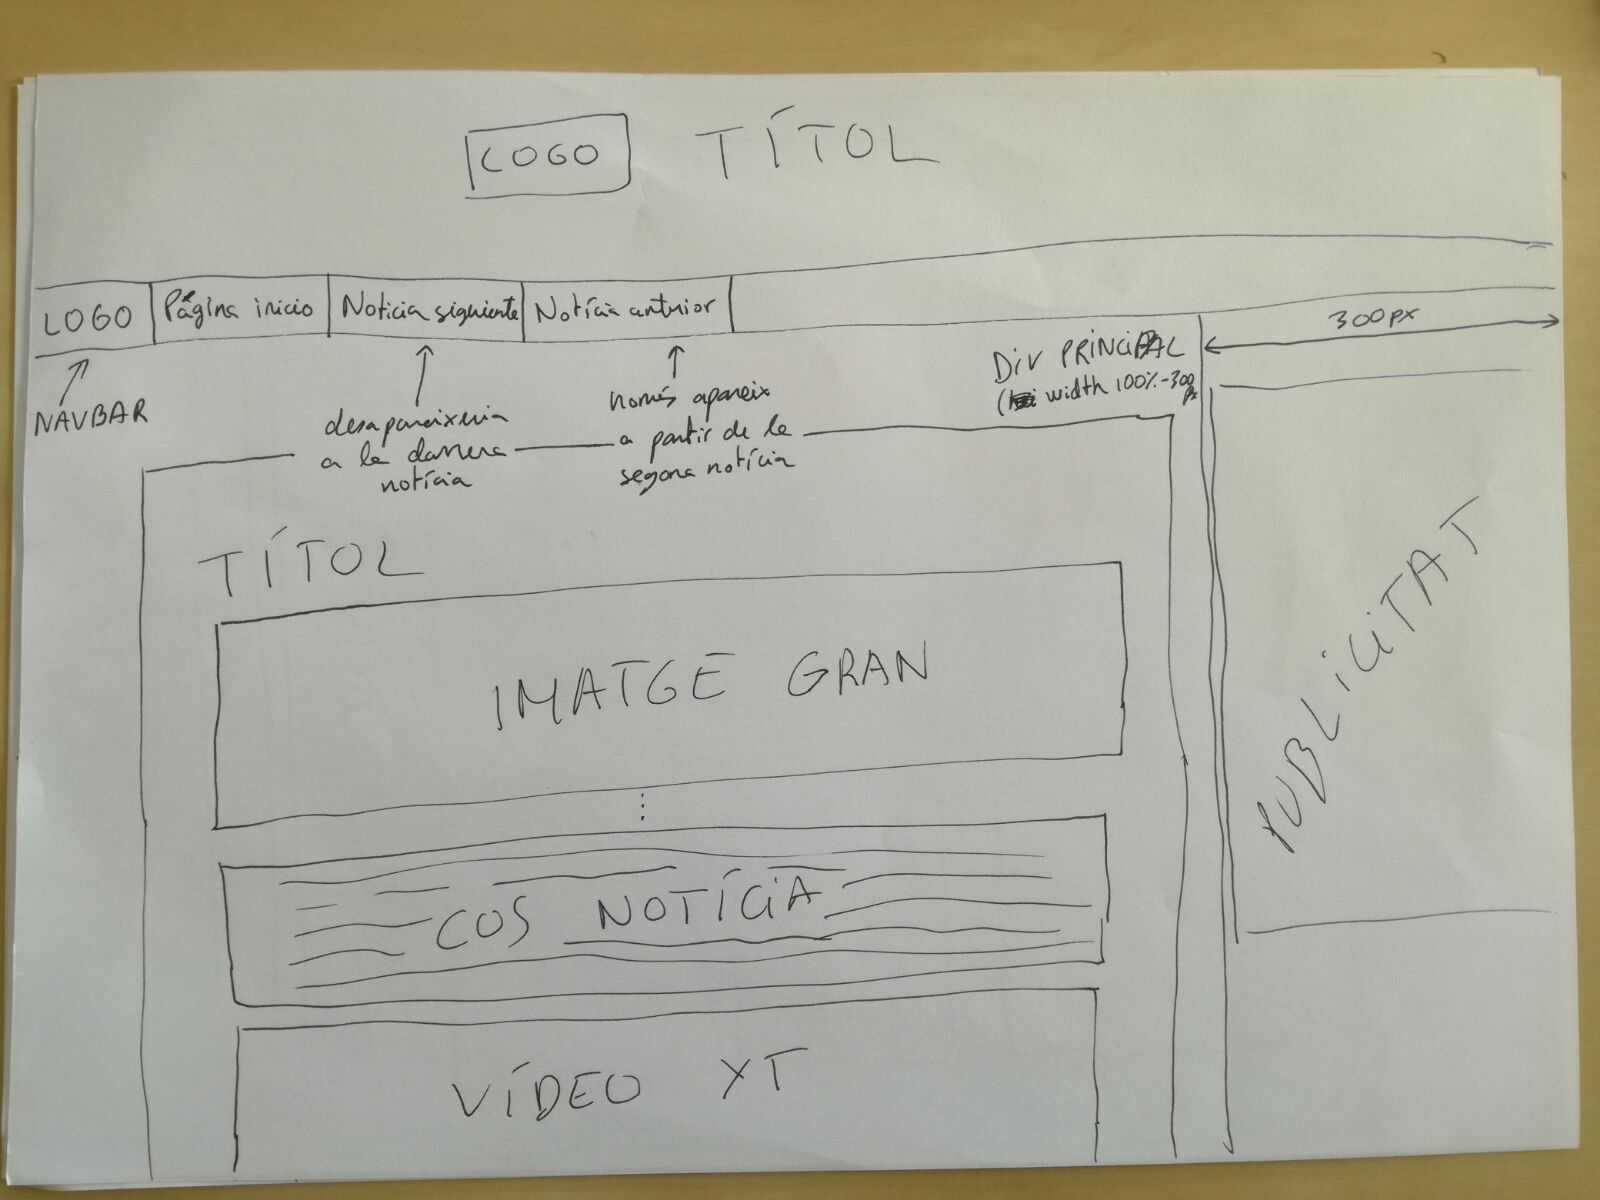 LOGO TÍTOL
LOGO
Página inicio
Noticia siguiente
Notícia anterior
300px
NAVBAR
desapareixeria
a la darrera
notícia
només apareix
a partir de la
segona notícia
DIV PRINCIPAL
width 100%-300
px
TÍTOL
IMATGE GRAN
COS NOTÍCIA
VÍDEO YT
PUBLICITAT